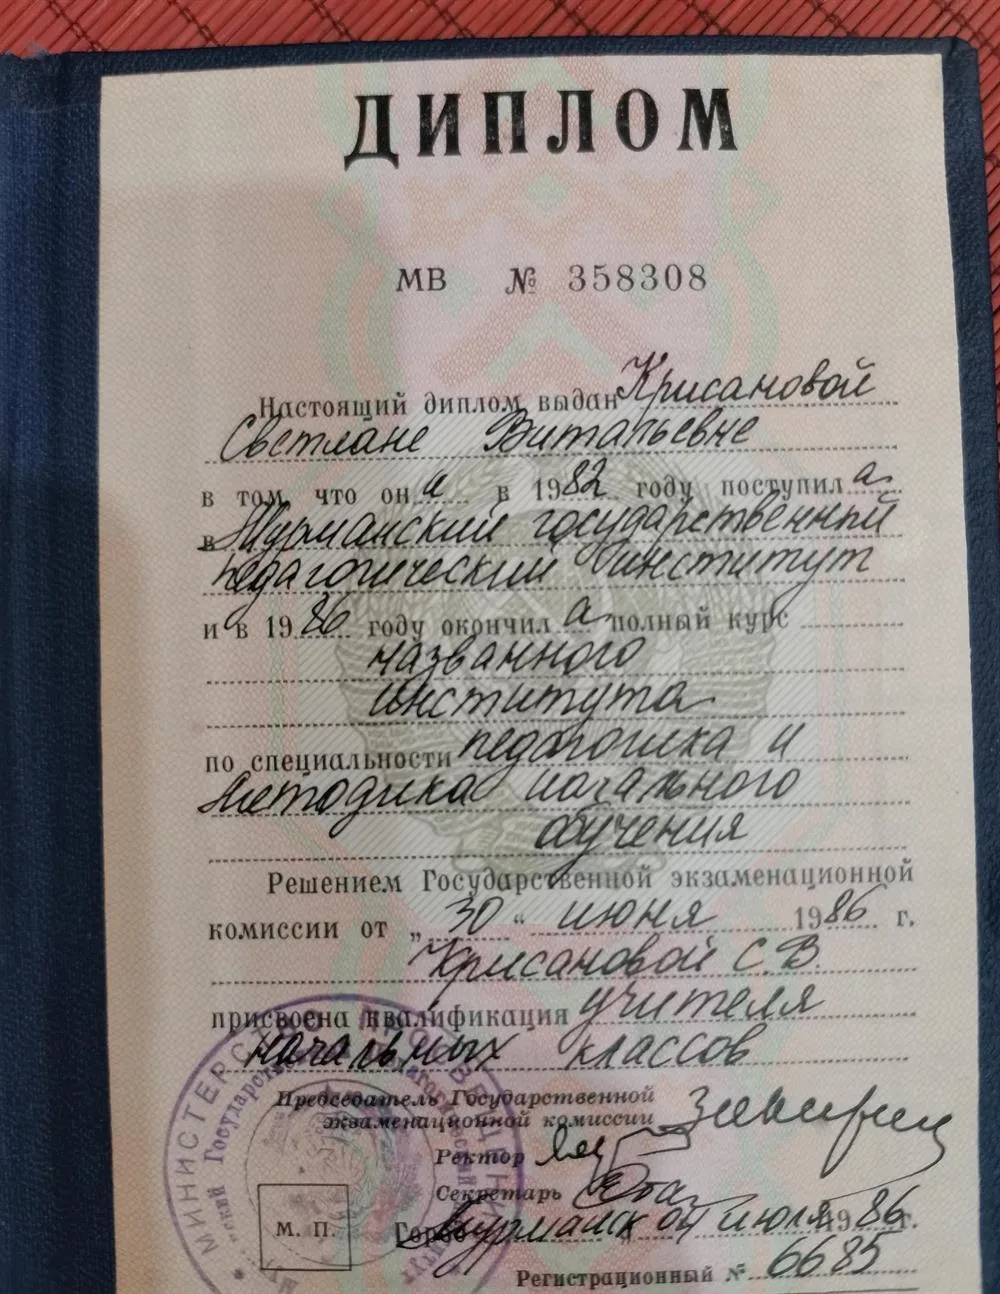 ДИПЛОМ
МВ № 358308
Настоящий диплом выдан Крисановой
Светлане Витальевне
в том, что она в 1982 году поступила
в Мурманский государственный
педагогический институт
и в 1986 году окончила полный курс
названного
института
по специальности педагогика и
методика начального
обучения
Решением Государственной экзаменационной
комиссии от „30“ июня 1986 г.
Крисановой С.В.
присвоена квалификация учителя
начальных классов
Председатель Государственной
экзаменационной комиссии
Ректор
Секретарь
М. П.
Город Мурманск 04 июля 1986 г.
Регистрационный № 6685
МИНИСТЕРСТВО ПРОСВЕЩЕНИЯ